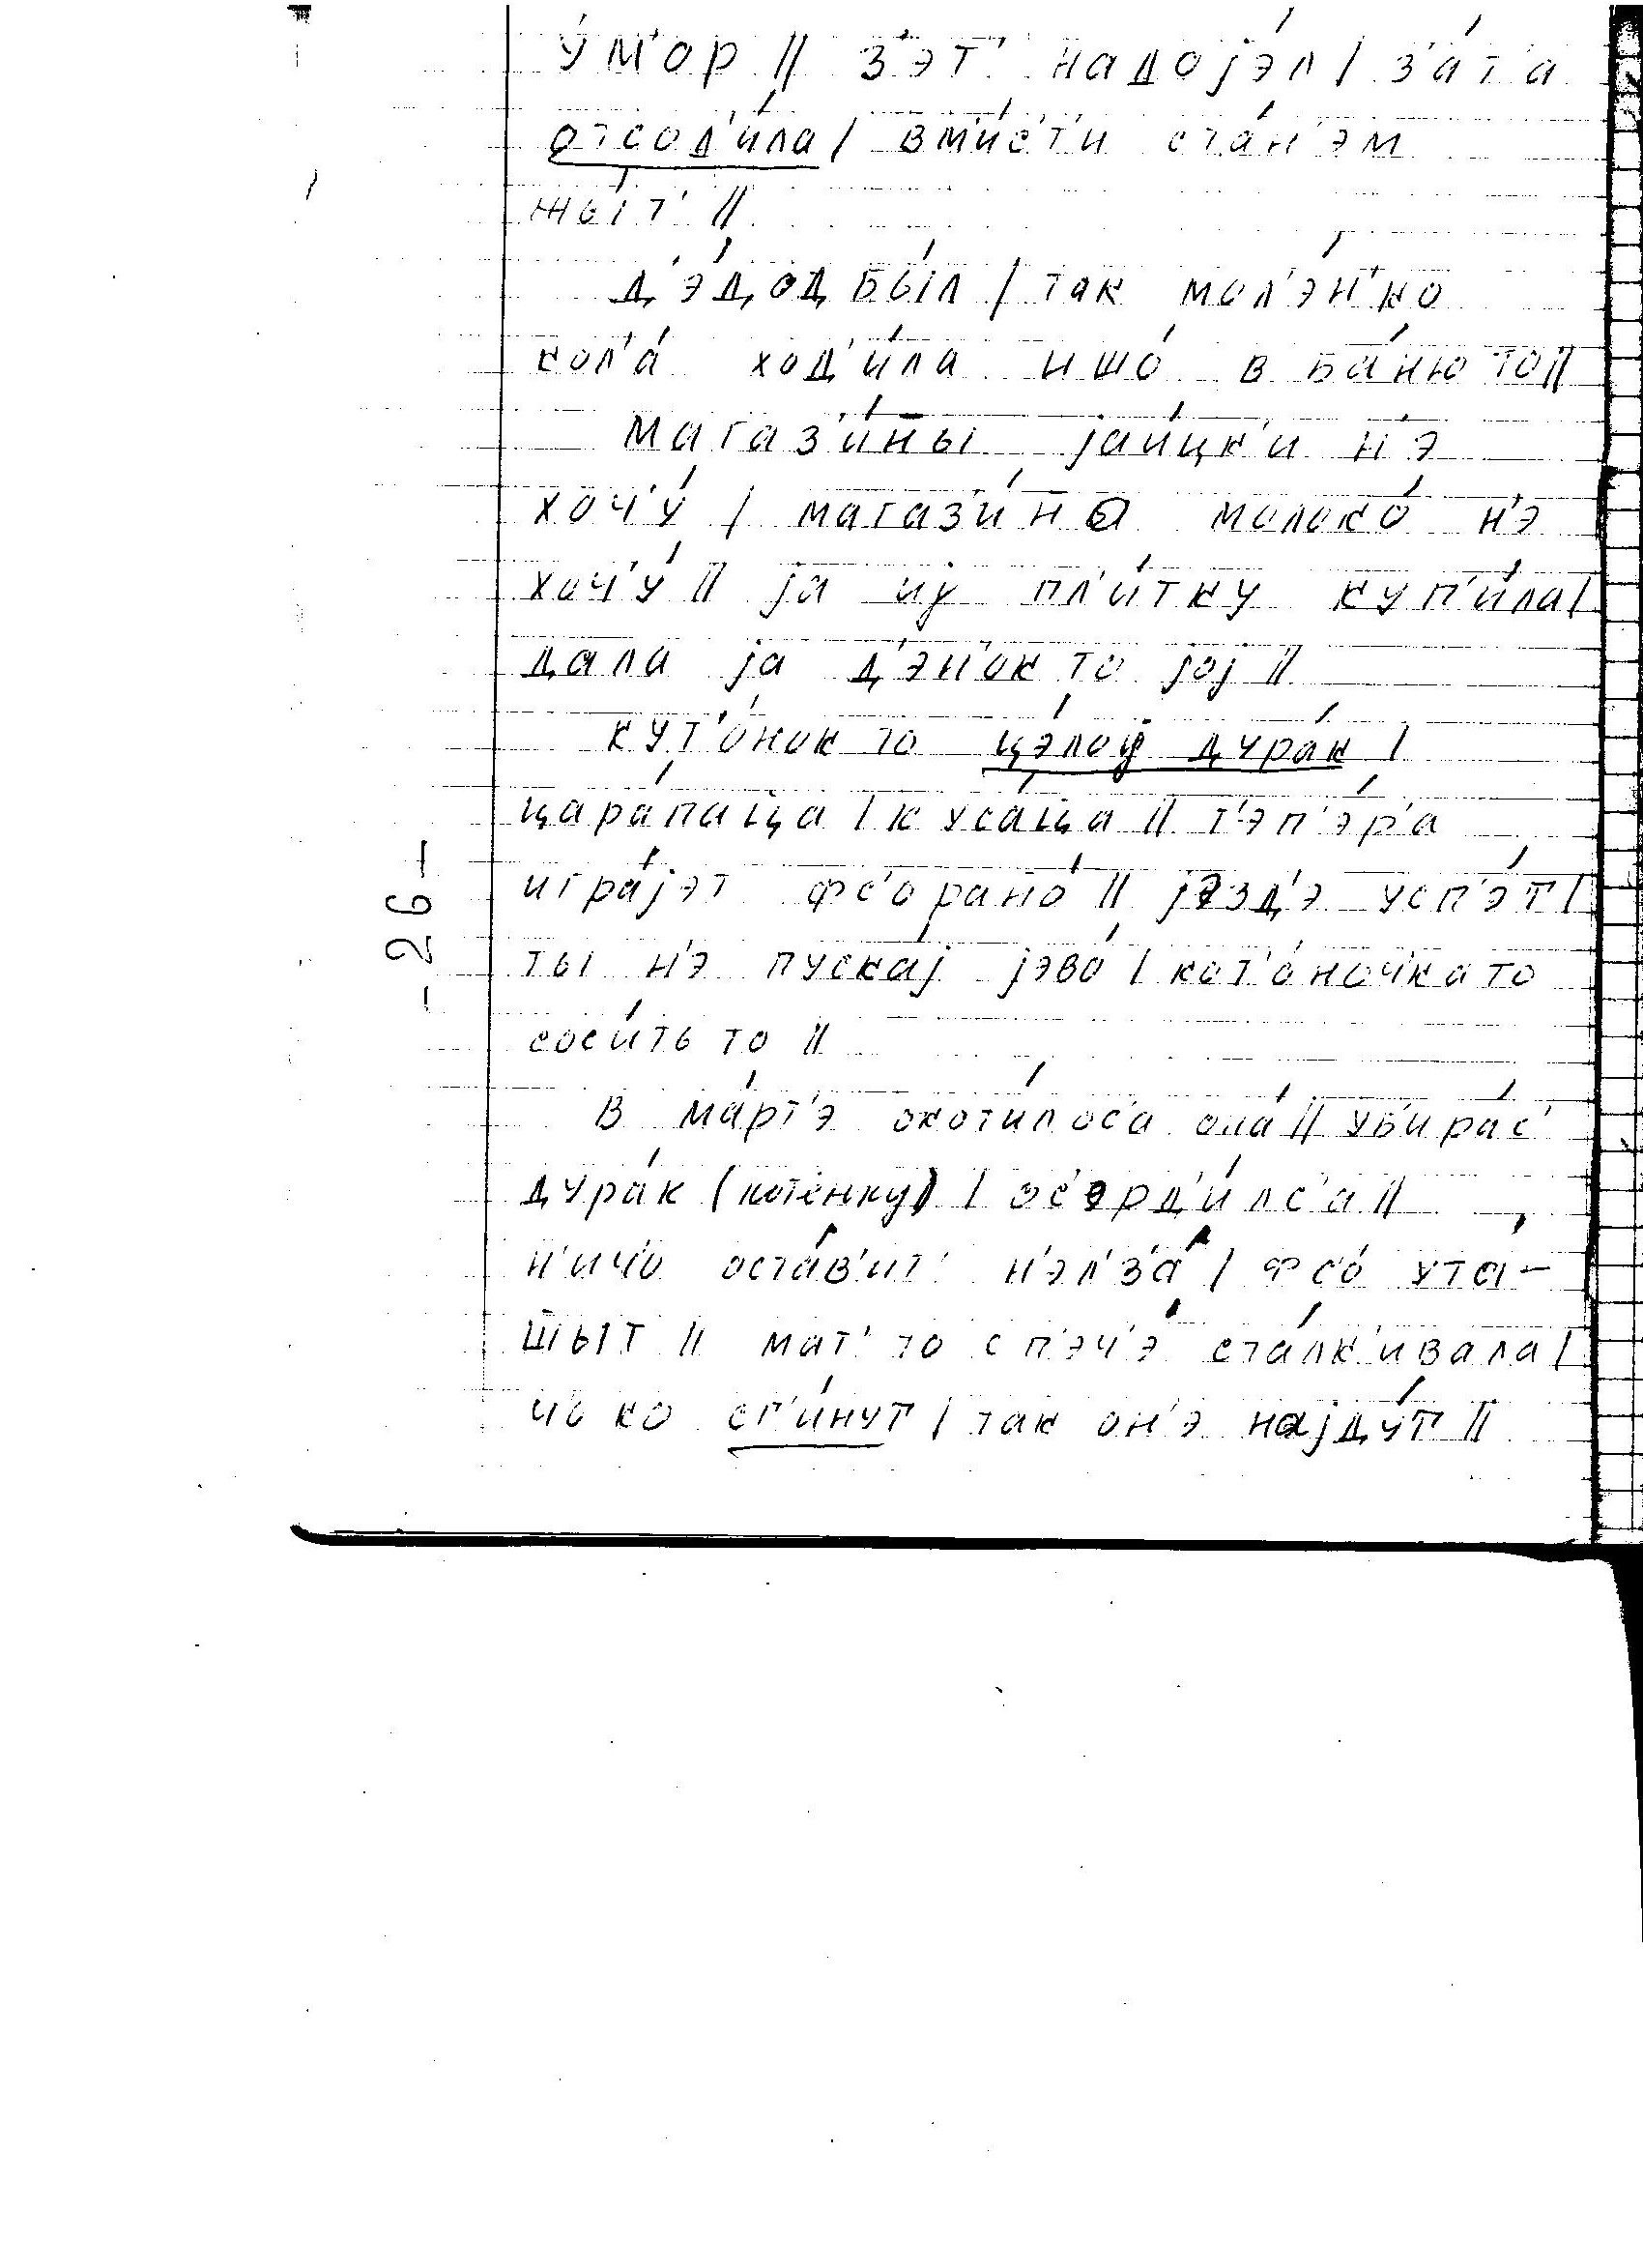 у́м'ор // з'эт' надоjэ́л / з'а́т'а
отсод'и́ла / вм'и́с'т'и ста́н'эм
жы́т' //
д'э́д од бы́л / так мал'э́н'ко
кол'а́ ход'и́ла ишо́ в ба́ню то //
магаз'и́ны jаи́цк'и н'э
хоч'у́ / магаз'и́но молоко́ н'э
хоч'у́ // jа иj пл'и́тку куп'и́ла /
дала jа д'э́н'ок то jоj //
кут'о́нок то цэ́лоj дура́к /
цара́паца / куса́ца // т'эп'э́р'а
игра́jэт фс'о рано́ // jэзд'э усп'э́т /
ты н'э пуска́j jэво́ / кот'о́ночка то
соси́ть то //
в ма́рт'э окоти́лос'а она́ // уб'ира́с'
дура́к (котёнку) / ос'эрд'и́лс'а //
н'ич'о оста́в'ит' н'эл'з'а́ / фс'о́ ута́-
шыт // мат' то с п'эч'э́ ста́лк'ивала /
ч'о ко сг'и́нут / так он'э наjду́т //
- 26 -